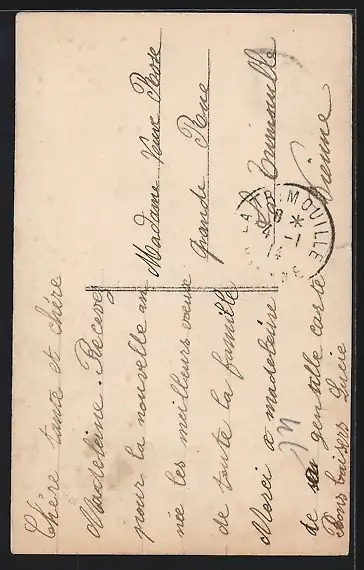 Chère tante et chère
Madeleine. Recevez
pour la nouvelle an
née les meilleurs vœux
de toute la famille
Merci a madeleine
de sa gentille carte
Bons baisers Lucie
Madame Veuve
Grande Rue
La Trimouille
Vienne
LA TRIMOUILLE